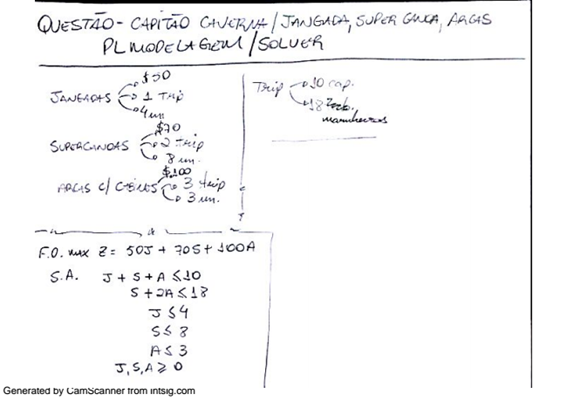 QUESTÃO - CAPITÃO CAVERNA / JANGADA, SUPER CANOA, ARCAS
PL MODELAGEM / SOLVER
JANGADAS
$50
1 Trip
4 un.
SUPERCANOAS
$70
2 Trip
8 un.
ARCAS C/
$100
3 trip
3 un.
Trip
10 cap.
18
marinheiros
F.O. MAX Z = 50J + 70S + 100A
S.A. J + S + A ≤ 10
S + 2A ≤ 18
J ≤ 4
S ≤ 8
A ≤ 3
J, S, A ≥ 0
Generated by CamScanner from intsig.com